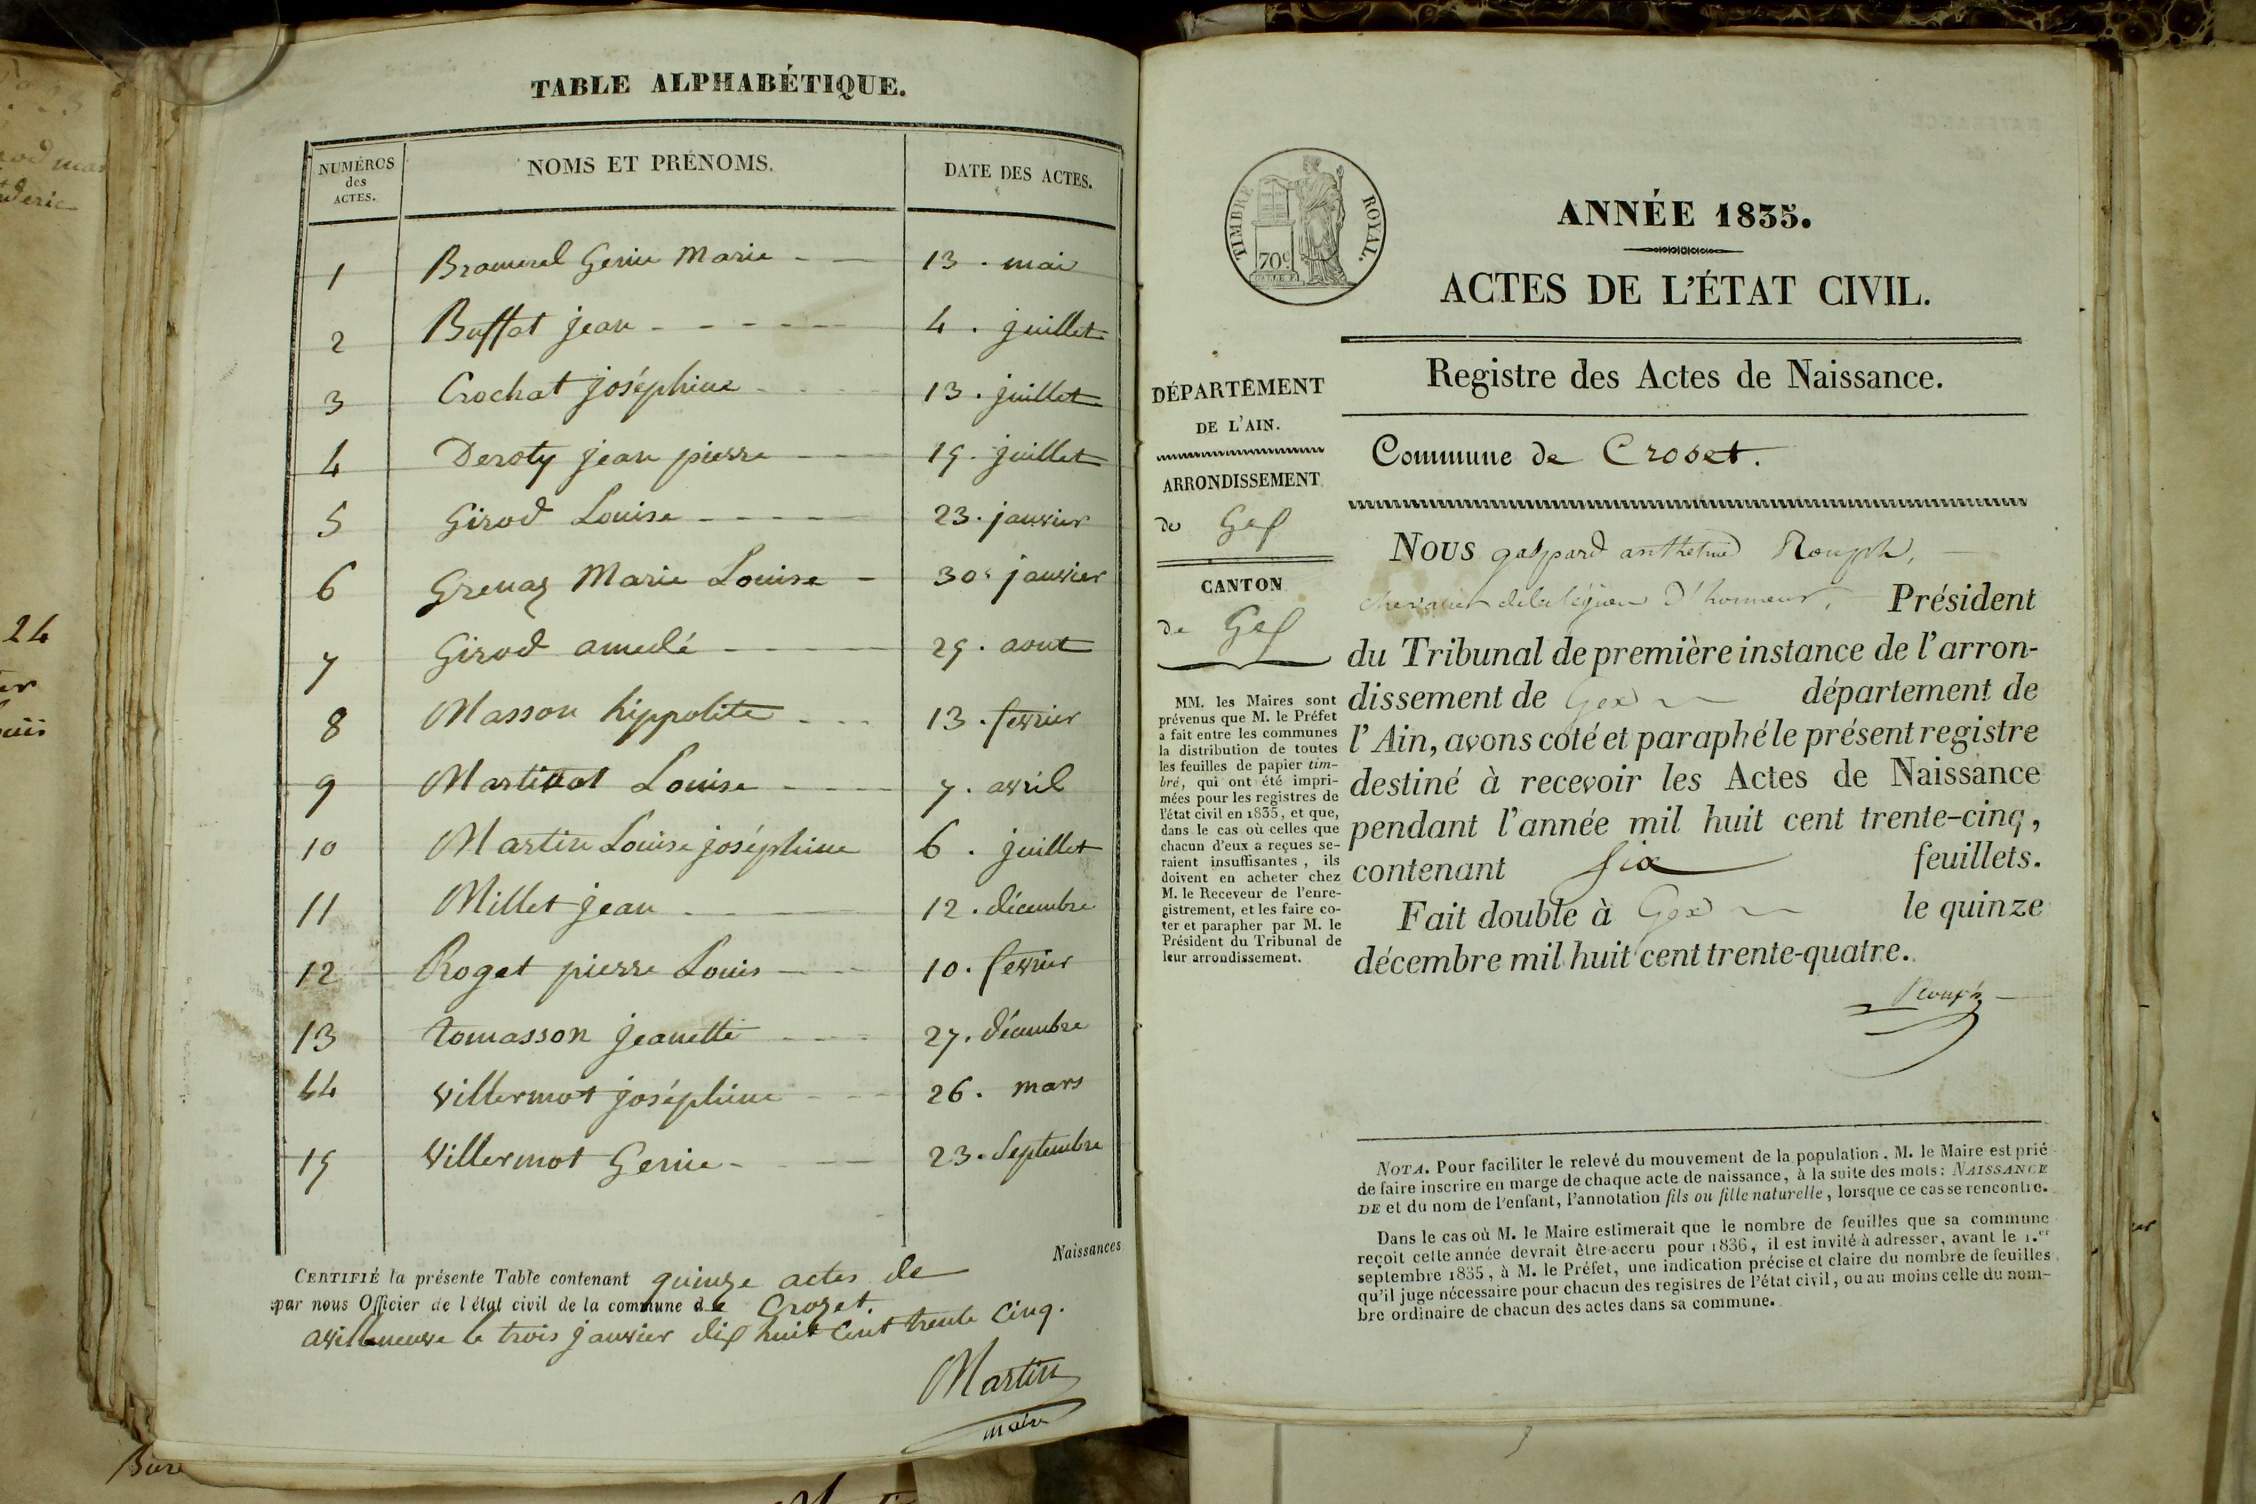 TABLE ALPHABÉTIQUE.
NUMÉROS des ACTES. NOMS ET PRÉNOMS. DATE DES ACTES.
1 Bramerel Genie Marie 13 . mai
2 Buffat jean 4 . juillet
3 Crochat joséphine 13 . juillet
4 Deroty jean pierre 15 . juillet
5 Girod Louise 23 . janvier
6 Grenaz Marie Louise 30 . janvier
7 Girod amedé 25 . aout
8 Masson hippolite 13 . fevrier
9 Louise 7 . avril
10 Martin Louise joséphine 6 . juillet
11 Millet jean 12 . décembre
12 Roget pierre Louis 10 . fevrier
13 tomasson jeanette 27 . décembre
14 villermot joséphine 26 . mars
15 villermot Genie 23 . septembre
Naissances
CERTIFIÉ la présente Table contenant quinze actes de
par nous Officier de l'état civil de la commune de Crozet.
avilleneuve le trois janvier dix huit cent trente cinq.
Martin
maire
TIMBRE ROYAL.
70c
ANNÉE 1835.
ACTES DE L'ÉTAT CIVIL.
Registre des Actes de Naissance.
Commune de Croset.
DÉPARTEMENT
DE L'AIN.
ARRONDISSEMENT
de Gex
CANTON
de Gex
MM. les Maires sont
prévenus que M. le Préfet
a fait entre les communes
la distribution de toutes
les feuilles de papier tim-
bré, qui ont été impri-
mées pour les registres de
l'état civil en 1835, et que,
dans le cas où celles que
chacun d'eux a reçues se-
raient insuffisantes, ils
doivent en acheter chez
M. le Receveur de l'enre-
gistrement, et les faire co-
ter et parapher par M. le
Président du Tribunal de
leur arrondissement.
NOUS gaspard anthelme Rouph,
chevalier de la légion d'honneur, Président
du Tribunal de première instance de l'arron-
dissement de Gex département de
l'Ain, avons coté et paraphé le présent registre
destiné à recevoir les Actes de Naissance
pendant l'année mil huit cent trente-cinq,
contenant six feuillets.
Fait double à Gex le quinze
décembre mil huit cent trente-quatre.
Rouph
NOTA. Pour faciliter le relevé du mouvement de la population, M. le Maire est prié
de faire inscrire en marge de chaque acte de naissance, à la suite des mots: NAISSANCE
DE et du nom de l'enfant, l'annotation fils ou fille naturelle, lorsque ce cas se rencontre.
Dans le cas où M. le Maire estimerait que le nombre de feuilles que sa commune
reçoit cette année devrait être accru pour 1836, il est invité à adresser, avant le 1.er
septembre 1835, à M. le Préfet, une indication précise et claire du nombre de feuilles
qu'il juge nécessaire pour chacun des registres de l'état civil, ou au moins celle du nom-
bre ordinaire de chacun des actes dans sa commune.
24